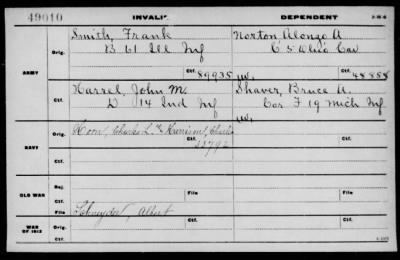 49010 INVALID. DEPENDENT 3-16-6
Smith, Frank Norton, Alonzo A
Orig. B 61 Ill Inf C 5 Ohio Cav
Ctf. 89935 W. Ctf. 48888
ARMY
Harrel, John M. Shaver, Bruce A.
Ctf. D 14 Ind Inf Cor F 19 Mich Inf
W.
Orig. Charles L.
Ctf.
NAVY
Ctf.
OLD WAR Rej.
Ctf. File File
WAR OF 1812 Orig. Schneyder, Albert
Ctf. Ctf.